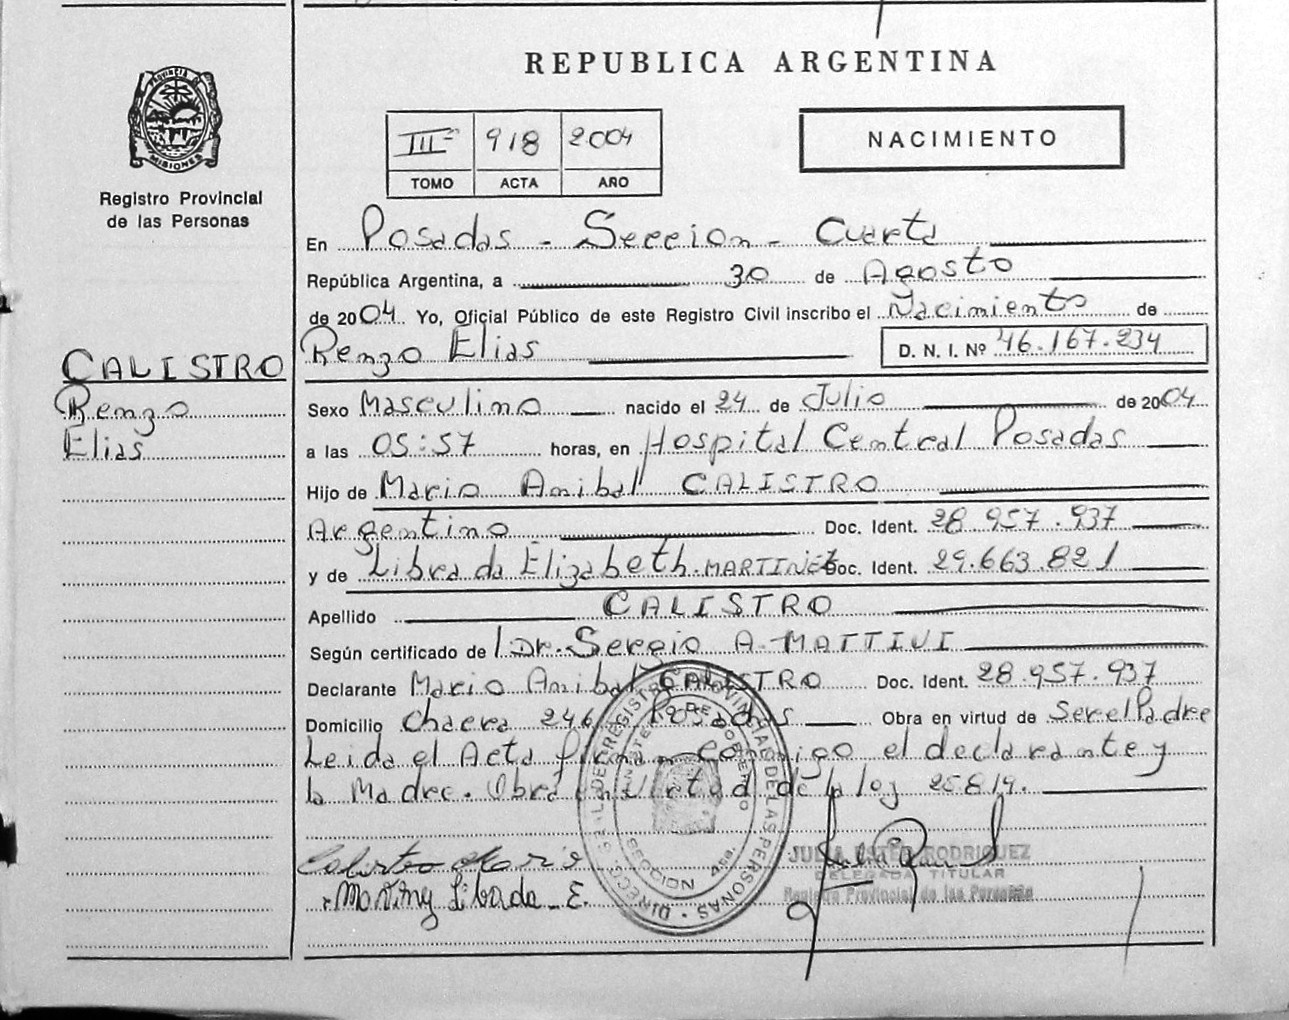 REPUBLICA ARGENTINA
PROVINCIA DE
MISIONES
Registro Provincial
de las Personas
III 918 2004
TOMO ACTA AÑO
NACIMIENTO
En Posadas - Seccion - Cuarta
República Argentina, a 30 de Agosto
de 2004 Yo, Oficial Público de este Registro Civil inscribo el Nacimiento de
Renzo Elias D. N. I. Nº 46.167.234
CALISTRO
Renzo
Elias
Sexo Masculino nacido el 24 de Julio de 2004
a las 05:57 horas, en Hospital Central Posadas
Hijo de Mario Anibal CALISTRO
Argentino Doc. Ident. 28.957.937
y de Librada Elizabeth MARTINEZ Doc. Ident. 29.663.821
Apellido CALISTRO
Según certificado de Dr. Sergio A. MATTIVI
Declarante Mario Anibal CALISTRO Doc. Ident. 28.957.937
Domicilio Chacra 246 Posadas Obra en virtud de Ser el Padre
Leida el Acta firman conmigo el declarante y
la Madre. Obra en virtud de la ley 25819.
Calistro Mario
Librada E.
JULIA ESTER RODRIGUEZ
DELEGADA TITULAR
Registro Provincial de las Personas
REGISTRO PROVINCIAL DE LAS PERSONAS
MINISTERIO DE GOBIERNO
SECCION 4ta.